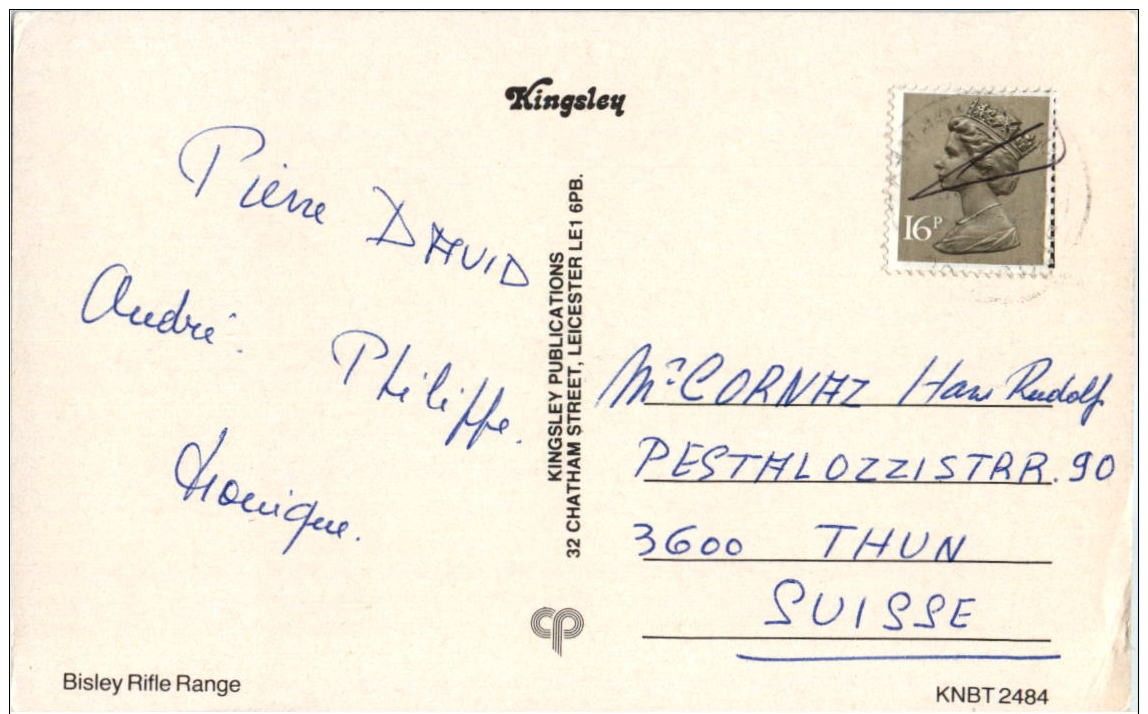 Kingsley
16P
Pierre DAVID
André.
Philippe.
Monique.
KINGSLEY PUBLICATIONS
32 CHATHAM STREET, LEICESTER LE1 6PB.
Mr CORNAZ Hans Rudolf
PESTALOZZISTRR. 90
3600 THUN
SUISSE
cp
Bisley Rifle Range
KNBT 2484